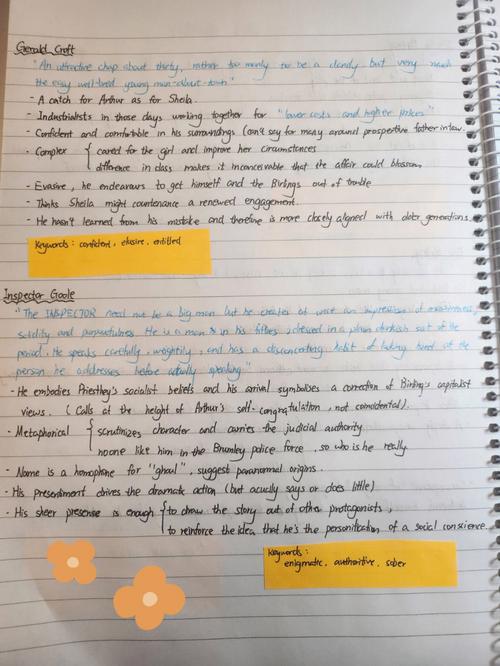 Gerald Croft
"An attractive chap about thirty, rather too manly to be a dandy but very much
the easy well-bred young man-about-town"
- A catch for Arthur as for Sheila.
- Industrialists in those days working together for "lower costs and higher prices"
- Confident and comfortable in his surroundings (can't say for many around prospective father in law.
- Complex { cared for the girl and improve her circumstances
difference in class makes it inconceivable that the affair could blossom
- Evasive, he endeavours to get himself and the Birlings out of trouble
- Thinks Sheila might countenance a renewed engagement.
- He hasn't learned from his mistake and therefore is more closely aligned with older generations.
Keywords: confident, elusive, entitled
Inspector Goole
"The INSPECTOR need not be a big man but he creates at once an impression of massiveness,
solidity and purposefulness. He is a man in his fifties, dressed in a plain darkish suit of the
period. He speaks carefully, weightily, and has a disconcerting habit of looking hard at the
person he addresses before actually speaking"
- He embodies Priestley's socialist beliefs and his arrival symbolises a correction of Birling's capitalist
views. (Calls at the height of Arthur's self-congratulation, not coincidental).
- Metaphorical { scrutinizes character and carries the judicial authority
no one like him in the Brumley police force, so who is he really
- Name is a homophone for "ghoul", suggest paranormal origins.
- His presentiment drives the dramatic action (but acually says or does little)
- His sheer presense is enough { to draw the story out of other protagonists,
to reinforce the idea that he's the personification of a social conscience.
Keywords:
enigmatic, authoritive, sober